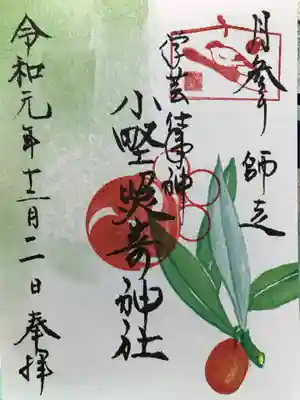 月參り 師走
学芸の神
小野照崎神社
令和元年十二月二日奉拝